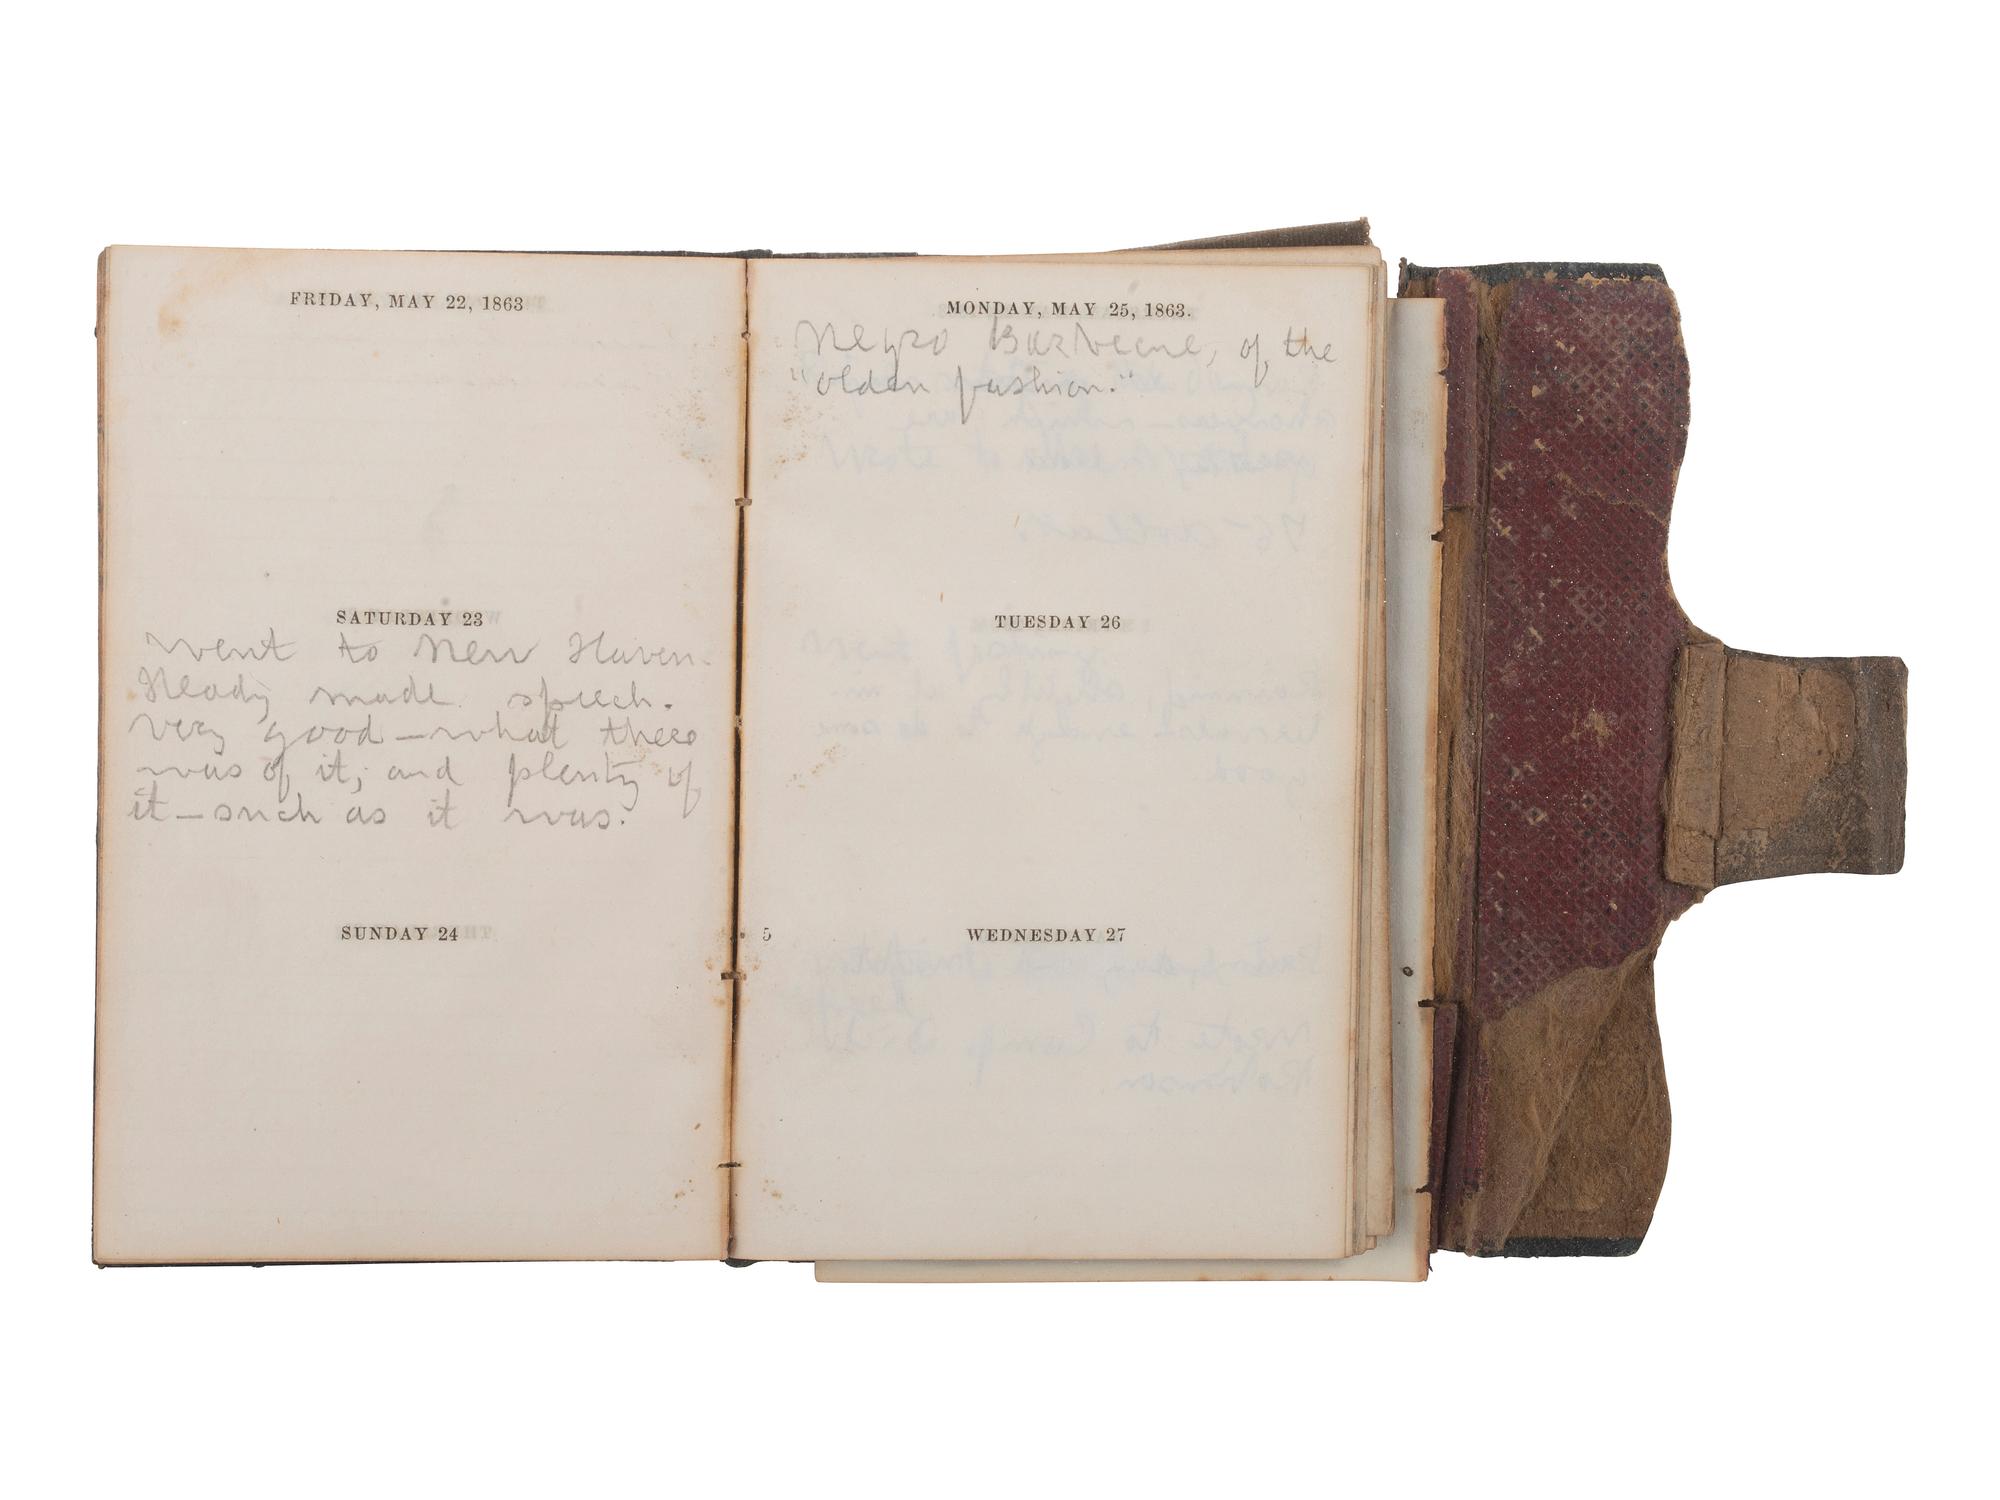 FRIDAY, MAY 22, 1863
SATURDAY 23
went to New Haven.
Neady made speech.
very good – what there
was of it; and plenty of
it – such as it was.
SUNDAY 24
MONDAY, MAY 25, 1863.
Negro Barbecue, of the
"olden fashion."
TUESDAY 26
5
WEDNESDAY 27